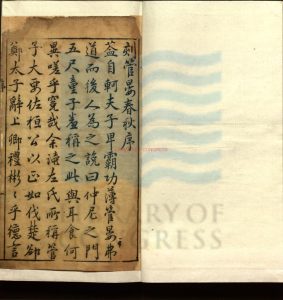 刻管晏春秋序
葢自軻夫子卑霸功薄管晏弗
道而後人為之說曰仲尼之門
五尺童子羞稱之此與耳食何
異嗟乎寃哉余讀左氏所稱管
子大要佐桓公以正如伐楚卻
鄭太子辭上卿禮彬彬乎德言
序
LIBRARY OF
CONGRESS